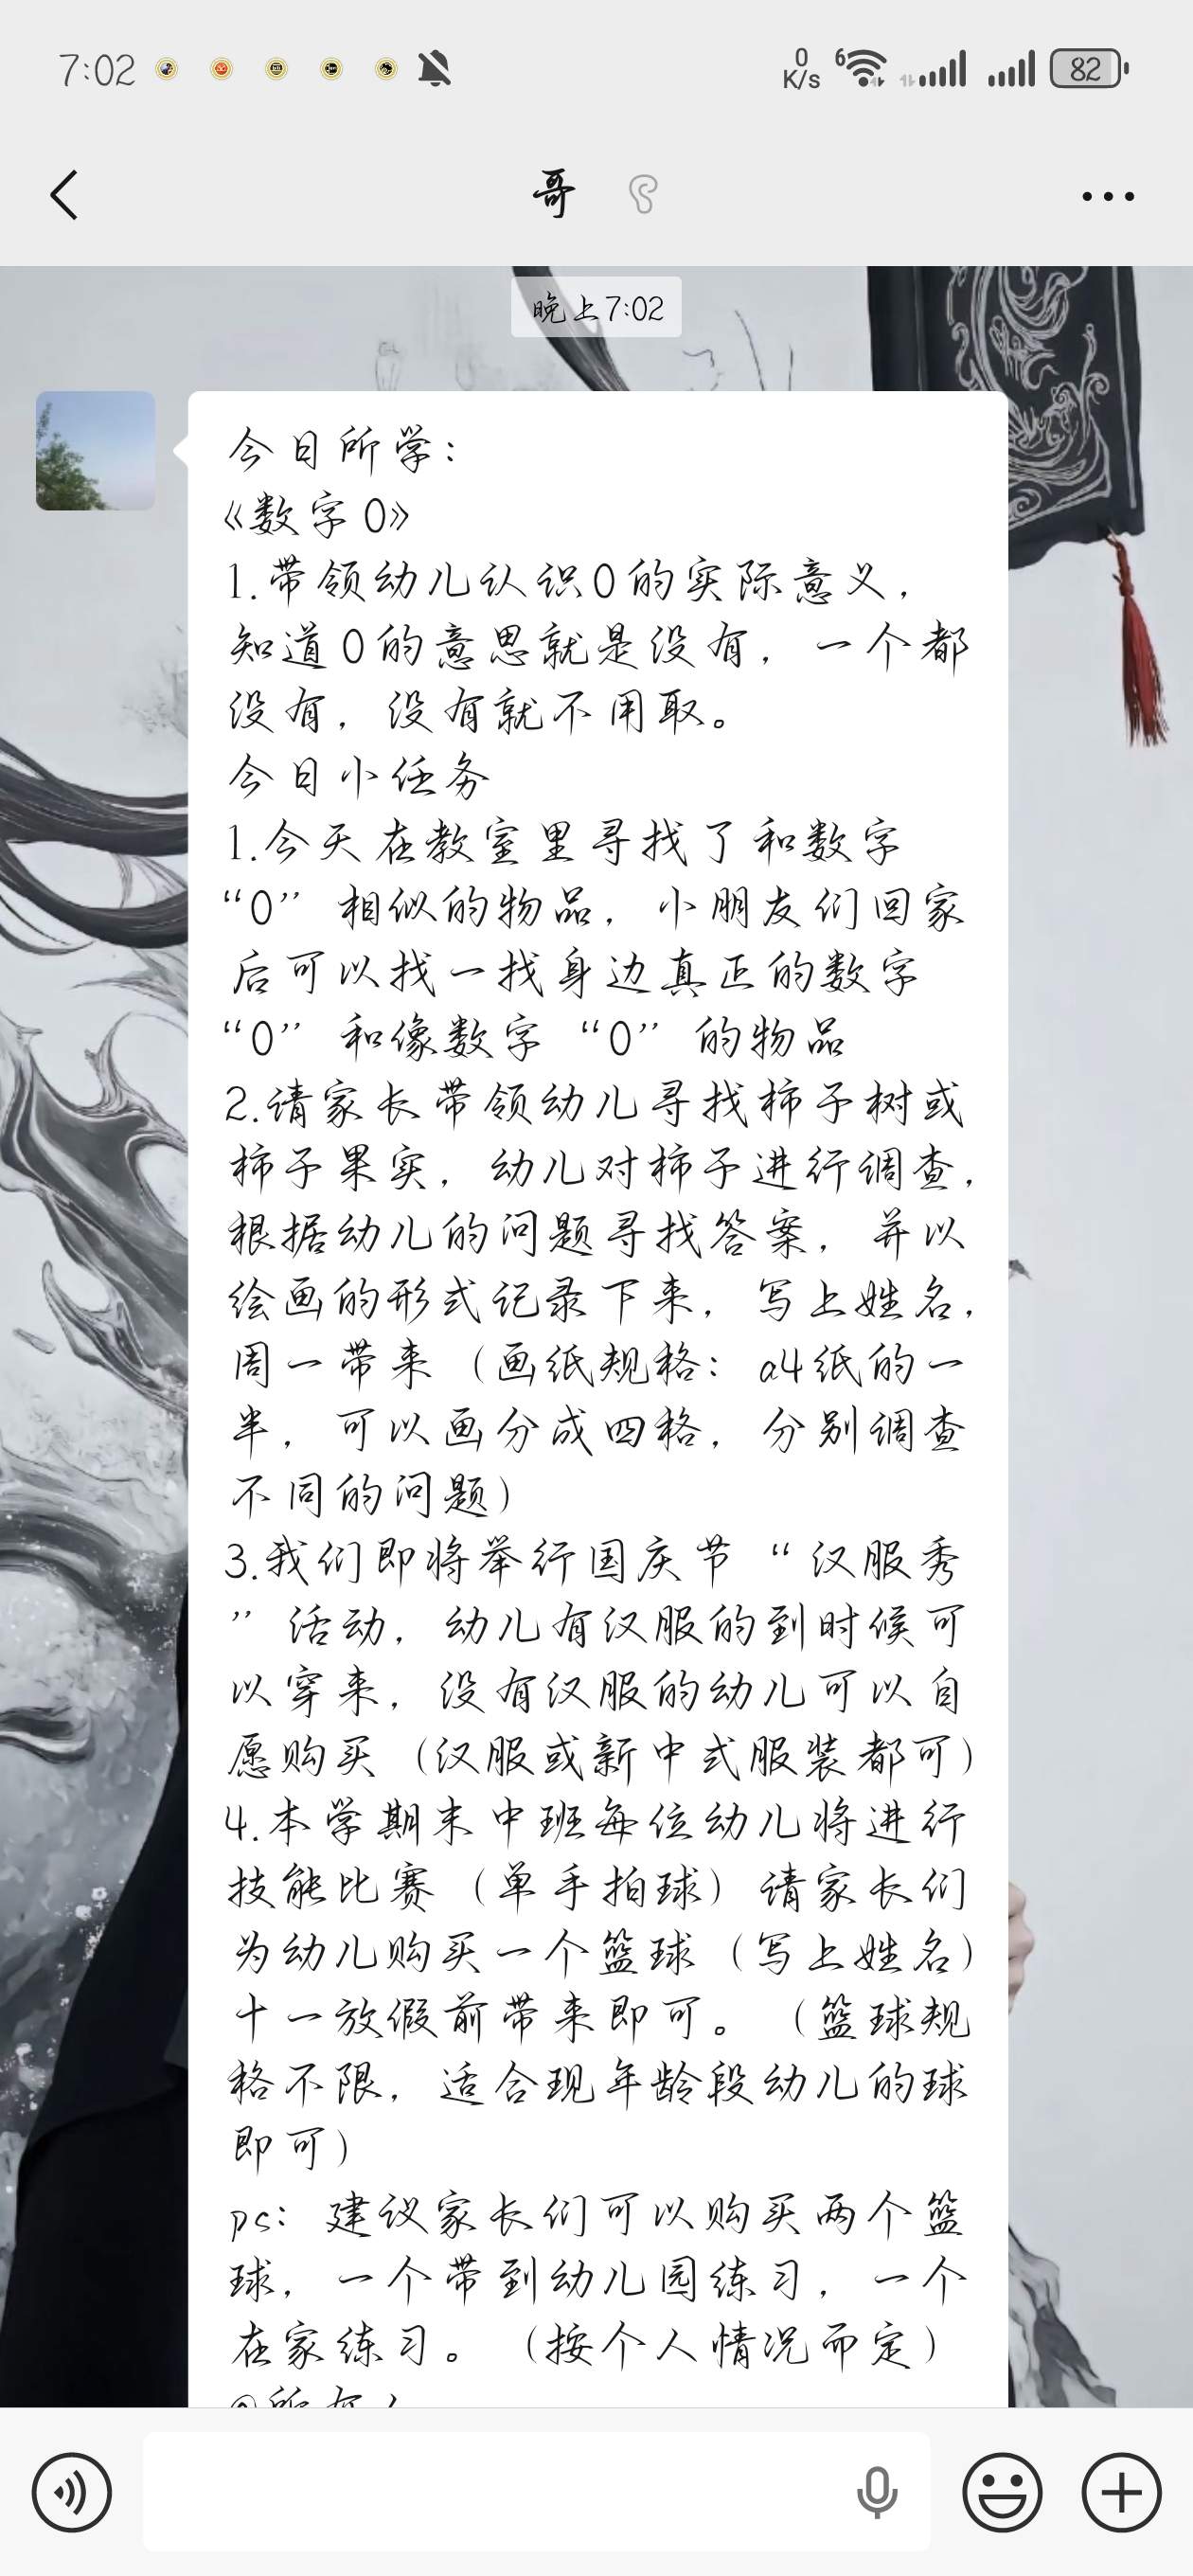 7:02
0
K/s
6
82
哥
晚上7:02
今日所学：
《数字0》
1.带领幼儿认识0的实际意义，
知道0的意思就是没有，一个都
没有，没有就不用取。
今日小任务
1.今天在教室里寻找了和数字
“0”相似的物品，小朋友们回家
后可以找一找身边真正的数字
“0”和像数字“0”的物品
2.请家长带领幼儿寻找柿子树或
柿子果实，幼儿对柿子进行调查，
根据幼儿的问题寻找答案，并以
绘画的形式记录下来，写上姓名，
周一带来（画纸规格：a4纸的一
半，可以画分成四格，分别调查
不同的问题）
3.我们即将举行国庆节“汉服秀
”活动，幼儿有汉服的到时候可
以穿来，没有汉服的幼儿可以自
愿购买（汉服或新中式服装都可）
4.本学期末中班每位幼儿将进行
技能比赛（单手拍球）请家长们
为幼儿购买一个篮球（写上姓名）
十一放假前带来即可。（篮球规
格不限，适合现年龄段幼儿的球
即可）
ps：建议家长们可以购买两个篮
球，一个带到幼儿园练习，一个
在家练习。（按个人情况而定）
@所有人